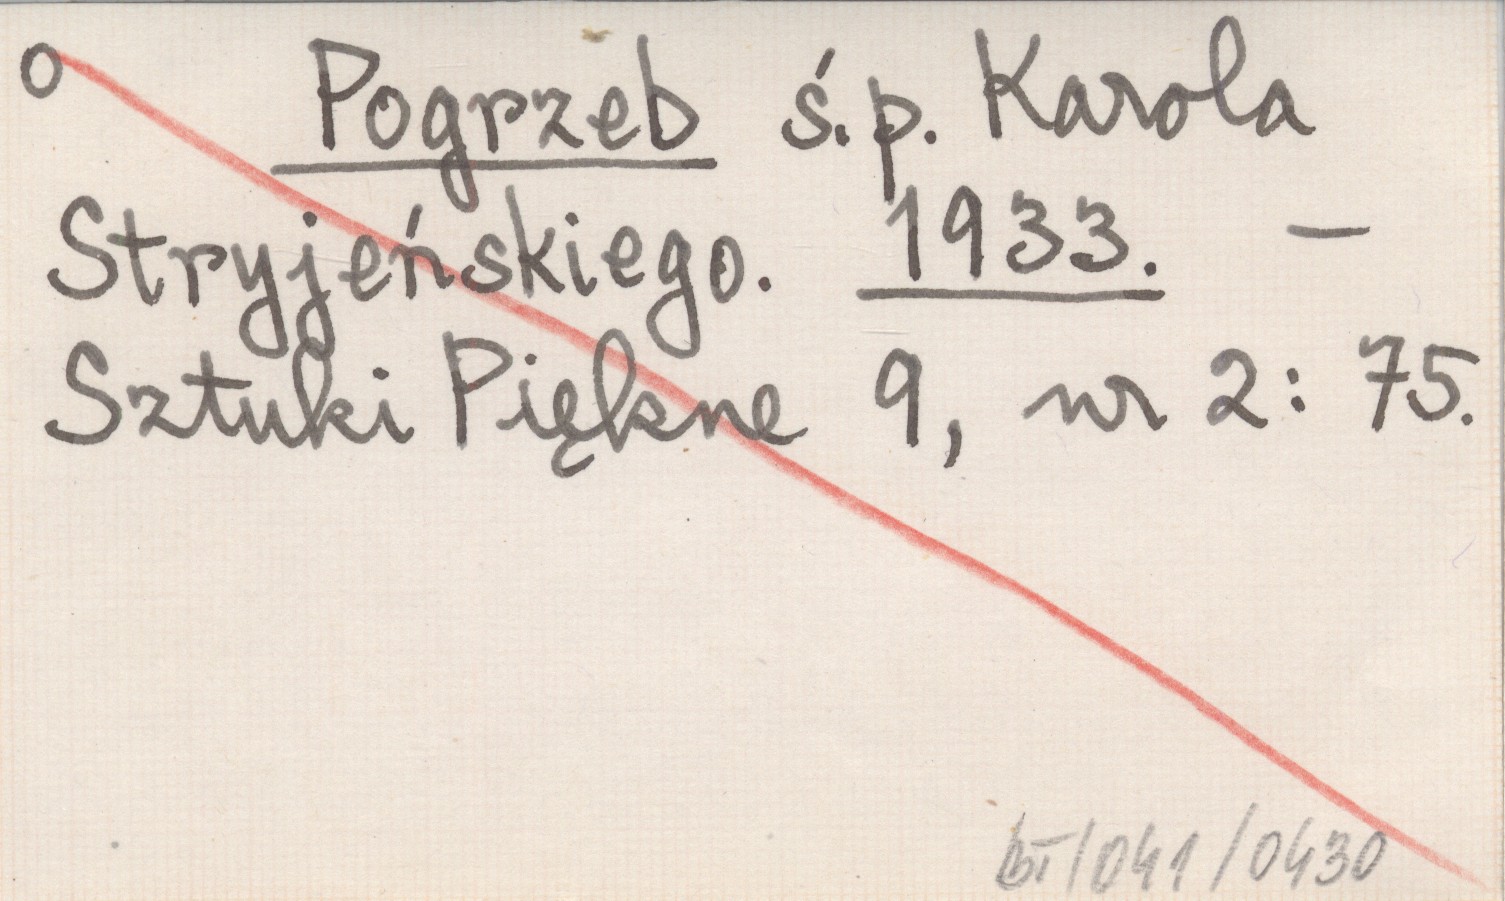 O Pogrzeb ś.p. Karola
Stryjeńskiego. 1933. —
Sztuki Piękne 9, nr 2: 75.
/041/0430